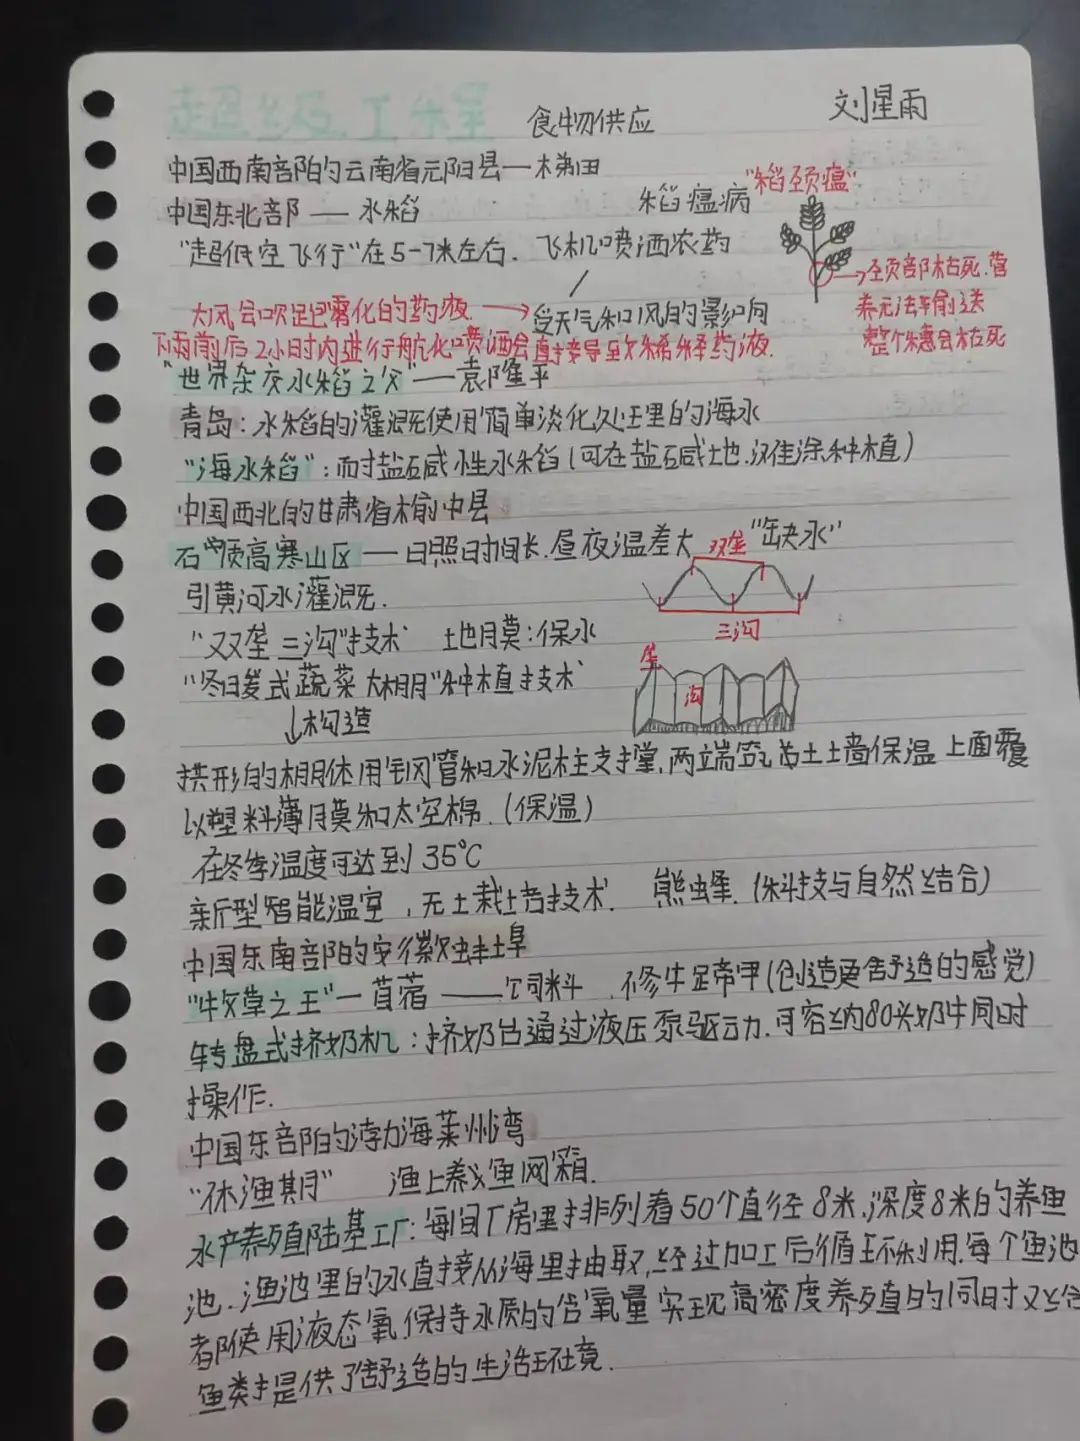 超级工程
食物供应
刘星雨
中国西南部的云南省元阳县—梯田
中国东北部 — 水稻
稻瘟病
"稻颈瘟"
"超低空飞行"在5-7米左右. 飞机喷洒农药
→颈部枯死.营
养无法平前送
整个穗会枯死
大风会吹跑雾化的药液 → 受天气和风的影响
下雨前后2小时内进行航化喷洒会直接导致稀释药液.
"世界杂交水稻之父"—袁隆平
青岛:水稻的灌溉使用简单淡化处理的海水
"海水稻":耐盐碱性水稻(可在盐碱地.滩涂种植)
中国西北的甘肃省榆中县
石质高寒山区—日照时间长.昼夜温差大 "缺水"
双垄
引黄河水灌溉.
三沟
"双垄三沟"技术 地膜:保水
垄
沟
"冬暖式蔬菜大棚"种植技术
↓构造
拱形的棚体用钢管和水泥柱支撑,两端筑以土墙保温 上面覆
以塑料薄膜和太空棉.(保温)
在冬季温度可达到35℃
新型智能温室,无土栽培技术. 熊蜂.(科技与自然结合)
中国东南部的安徽蚌埠
"牧草之王"—苜蓿 —— 饲料 .修牛足蹄甲(创造更舒适的感觉)
转盘式挤奶机:挤奶台通过液压泵驱动.可容纳80头奶牛同时
操作.
中国东部的渤海莱州湾
"休渔期" 渔上养鱼网箱.
水产养殖陆基工厂:每间厂房里排列着50个直径8米.深度8米的养鱼
池.渔池里的水直接从海里抽取,经过加工后循环利用.每个鱼池
都使用液态氧保持水质的含氧量实现高密度养殖的同时又给
鱼类提供了舒适的生活环境.